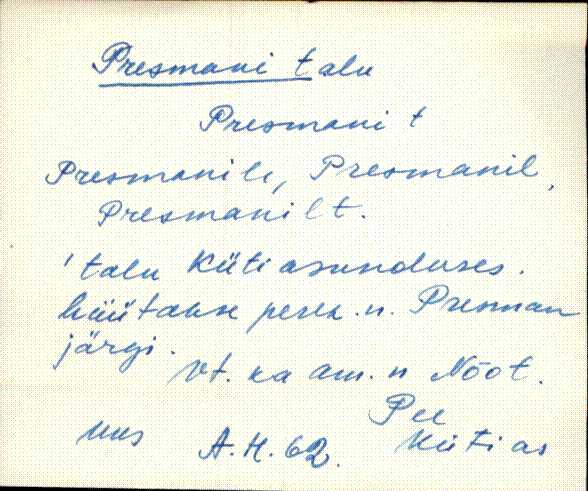 Presmani talu
Presmani t
Presmanile, Presmanil,
Presmanilt.
'talu Küti asunduses.
hüütakse perek. n. Presman
järgi.
Vt. ka am. n Nõot.
Pee
uus A. H. 62. Küti as